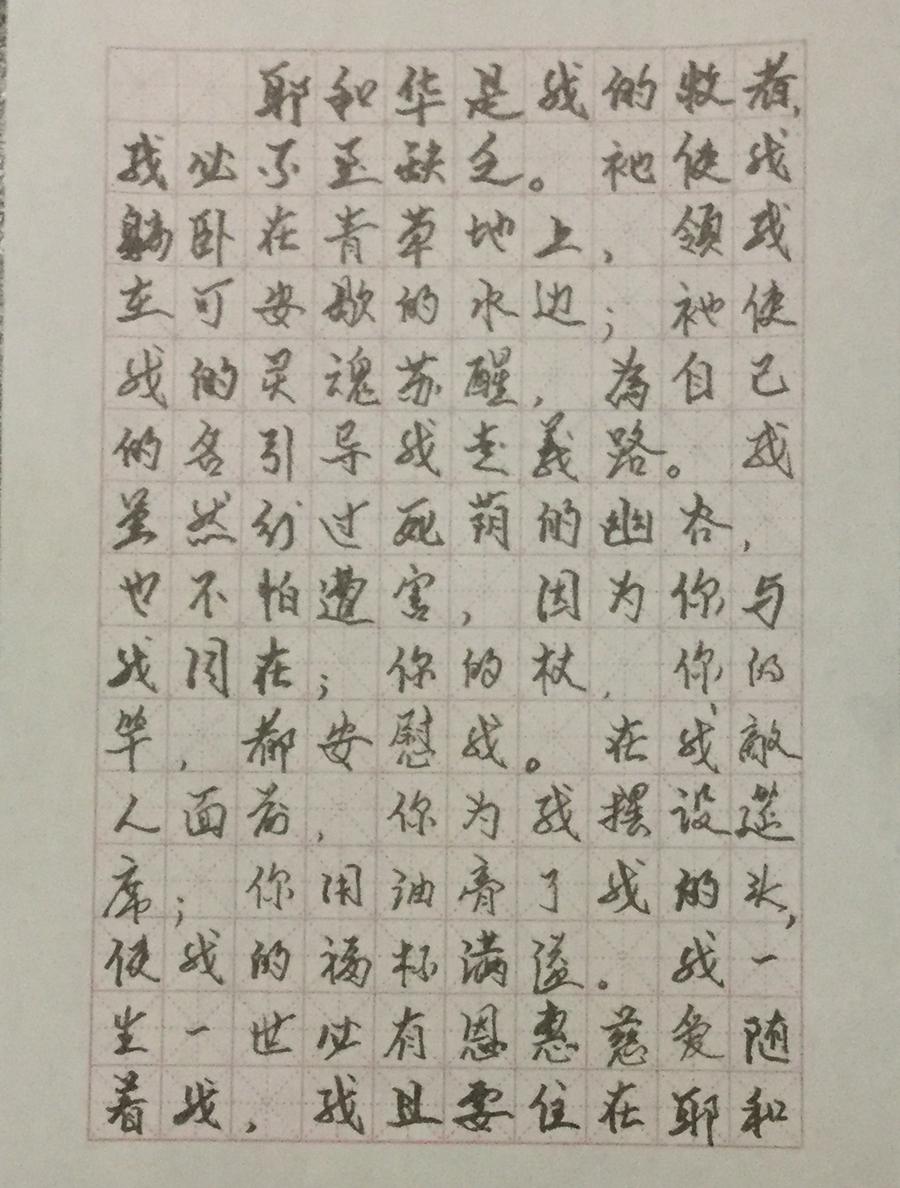 耶和华是我的牧者,
我必不至缺乏。祂使我
躺卧在青草地上,领我
在可安歇的水边;祂使
我的灵魂苏醒,為自己
的名引导我走義路。我
虽然行过死荫的幽谷,
也不怕遭害,因为你与
我同在;你的杖,你的
竿,都安慰我。在我敵
人面前,你为我摆设筵
席;你用油膏了我的头,
使我的福杯满溢。我一
生一世必有恩惠慈爱随
着我,我且要住在耶和